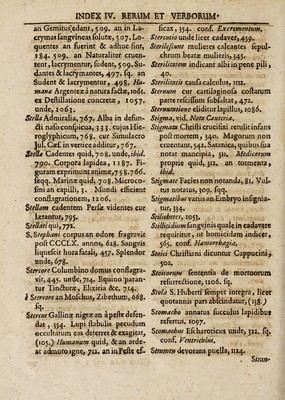 INDEX IV. RERUM ET VERBORUM.
an Gemitus edant, 509. an in La-
crymas sangvineas solutæ, 507. Lo-
quentes an fuerint & adhuc sint,
184. 509. an Naturaliter cruen-
tent, lacrymentur, sudent, 509. Su-
dantes & lacrymantes, 497. sq. an
Sudent & lacrymentur, 498. Hu-
manæ Argenteæ à natura factæ, 1061.
ex Destillatione concretæ, 1057.
unde, 1063.
Stella Admiralia, 767. Alba in defun-
cti naso conspicua, 333. cujus Hie-
roglyphicum, 768. cur Simulacro
Jul. Cæs. in vertice additur, 767.
Stellæ Cadentes quid, 708. unde, ibid.
790. Corpora lapidea, 1187. Fi-
guram exprimunt animæ, 758. 766.
seqq. Marinæ quid, 708. Microco-
smi an capilli, 3. Mundi efficient
conflagrationem, 1206.
Stellam cadentem Persæ videntes cur
lætantur, 795.
Stellati qui, 772.
S. Stephani corpus an odore fragravit
post CCCLX. annos, 628. Sangvis
liquescit hora fatali, 457. Splendor
unde, 678.
Stercore Columbino domus conflagra-
vit, 445. unde, 714. Equino paran-
tur Tincturæ, Elixiria &c. 714.
è Stercore an Moschus, Zibethum, 668.
sq.
Stercus Gallinæ nigræ an à peste defen-
dat, 354. Lupi stabulis pecudum
occultatum eas deterret & exagitat,
(105.) Humanum quid, & an arde-
at admoto igne, 712. an in Peste ef-
ficax, 354. conf. Excrementum.
Sternutio unde licet cadaver, 459.
Sterilescunt mulieres calcantes sepul-
chrum beatæ mulieris, 345.
Sterilitatem indicant albi in pene pili,
40.
Sterilitatis causa calculus, 112.
Sternum cur cartilaginosa costarum
parte tescissum subsidat, 472.
Sternutatione eliditur lapillus, 1086.
Stigma, vid. Nota Cauteria.
Stigmata Christi crucifixi retulit infans
post mortem, 340. Magorum non
cruentant, 542. Satanica, quibus sua
notat mancipia, 311. Mediceorum
proprie quid, 312. an tormenta,
ibid.
Stigmate Facies non notanda, 81. Vul-
tus notatus, 309. sqq.
Stigmatibus variis an Embryo insignia-
tur, 334.
Stilicbetes, 1053.
Stillicidium sangvinis quale in cadavere
requiritur, ut homicidam indicet,
565. conf. Hæmorrhagia.
Stoici Christiani dicuntur Cappucini,
502.
Stoicorum sententia de mortuorum
resurrectione, 1206. sq.
Stola S. Huberti semper integra, licet
quotannis pars abscindatur, (138.)
Stomacho annatus succulus lapidibus
refertus, 1097.
Stomachus Escharoticus unde, 312. sq.
conf. Ventriculus.
Strumis devorans puella, 1124.
Stran-